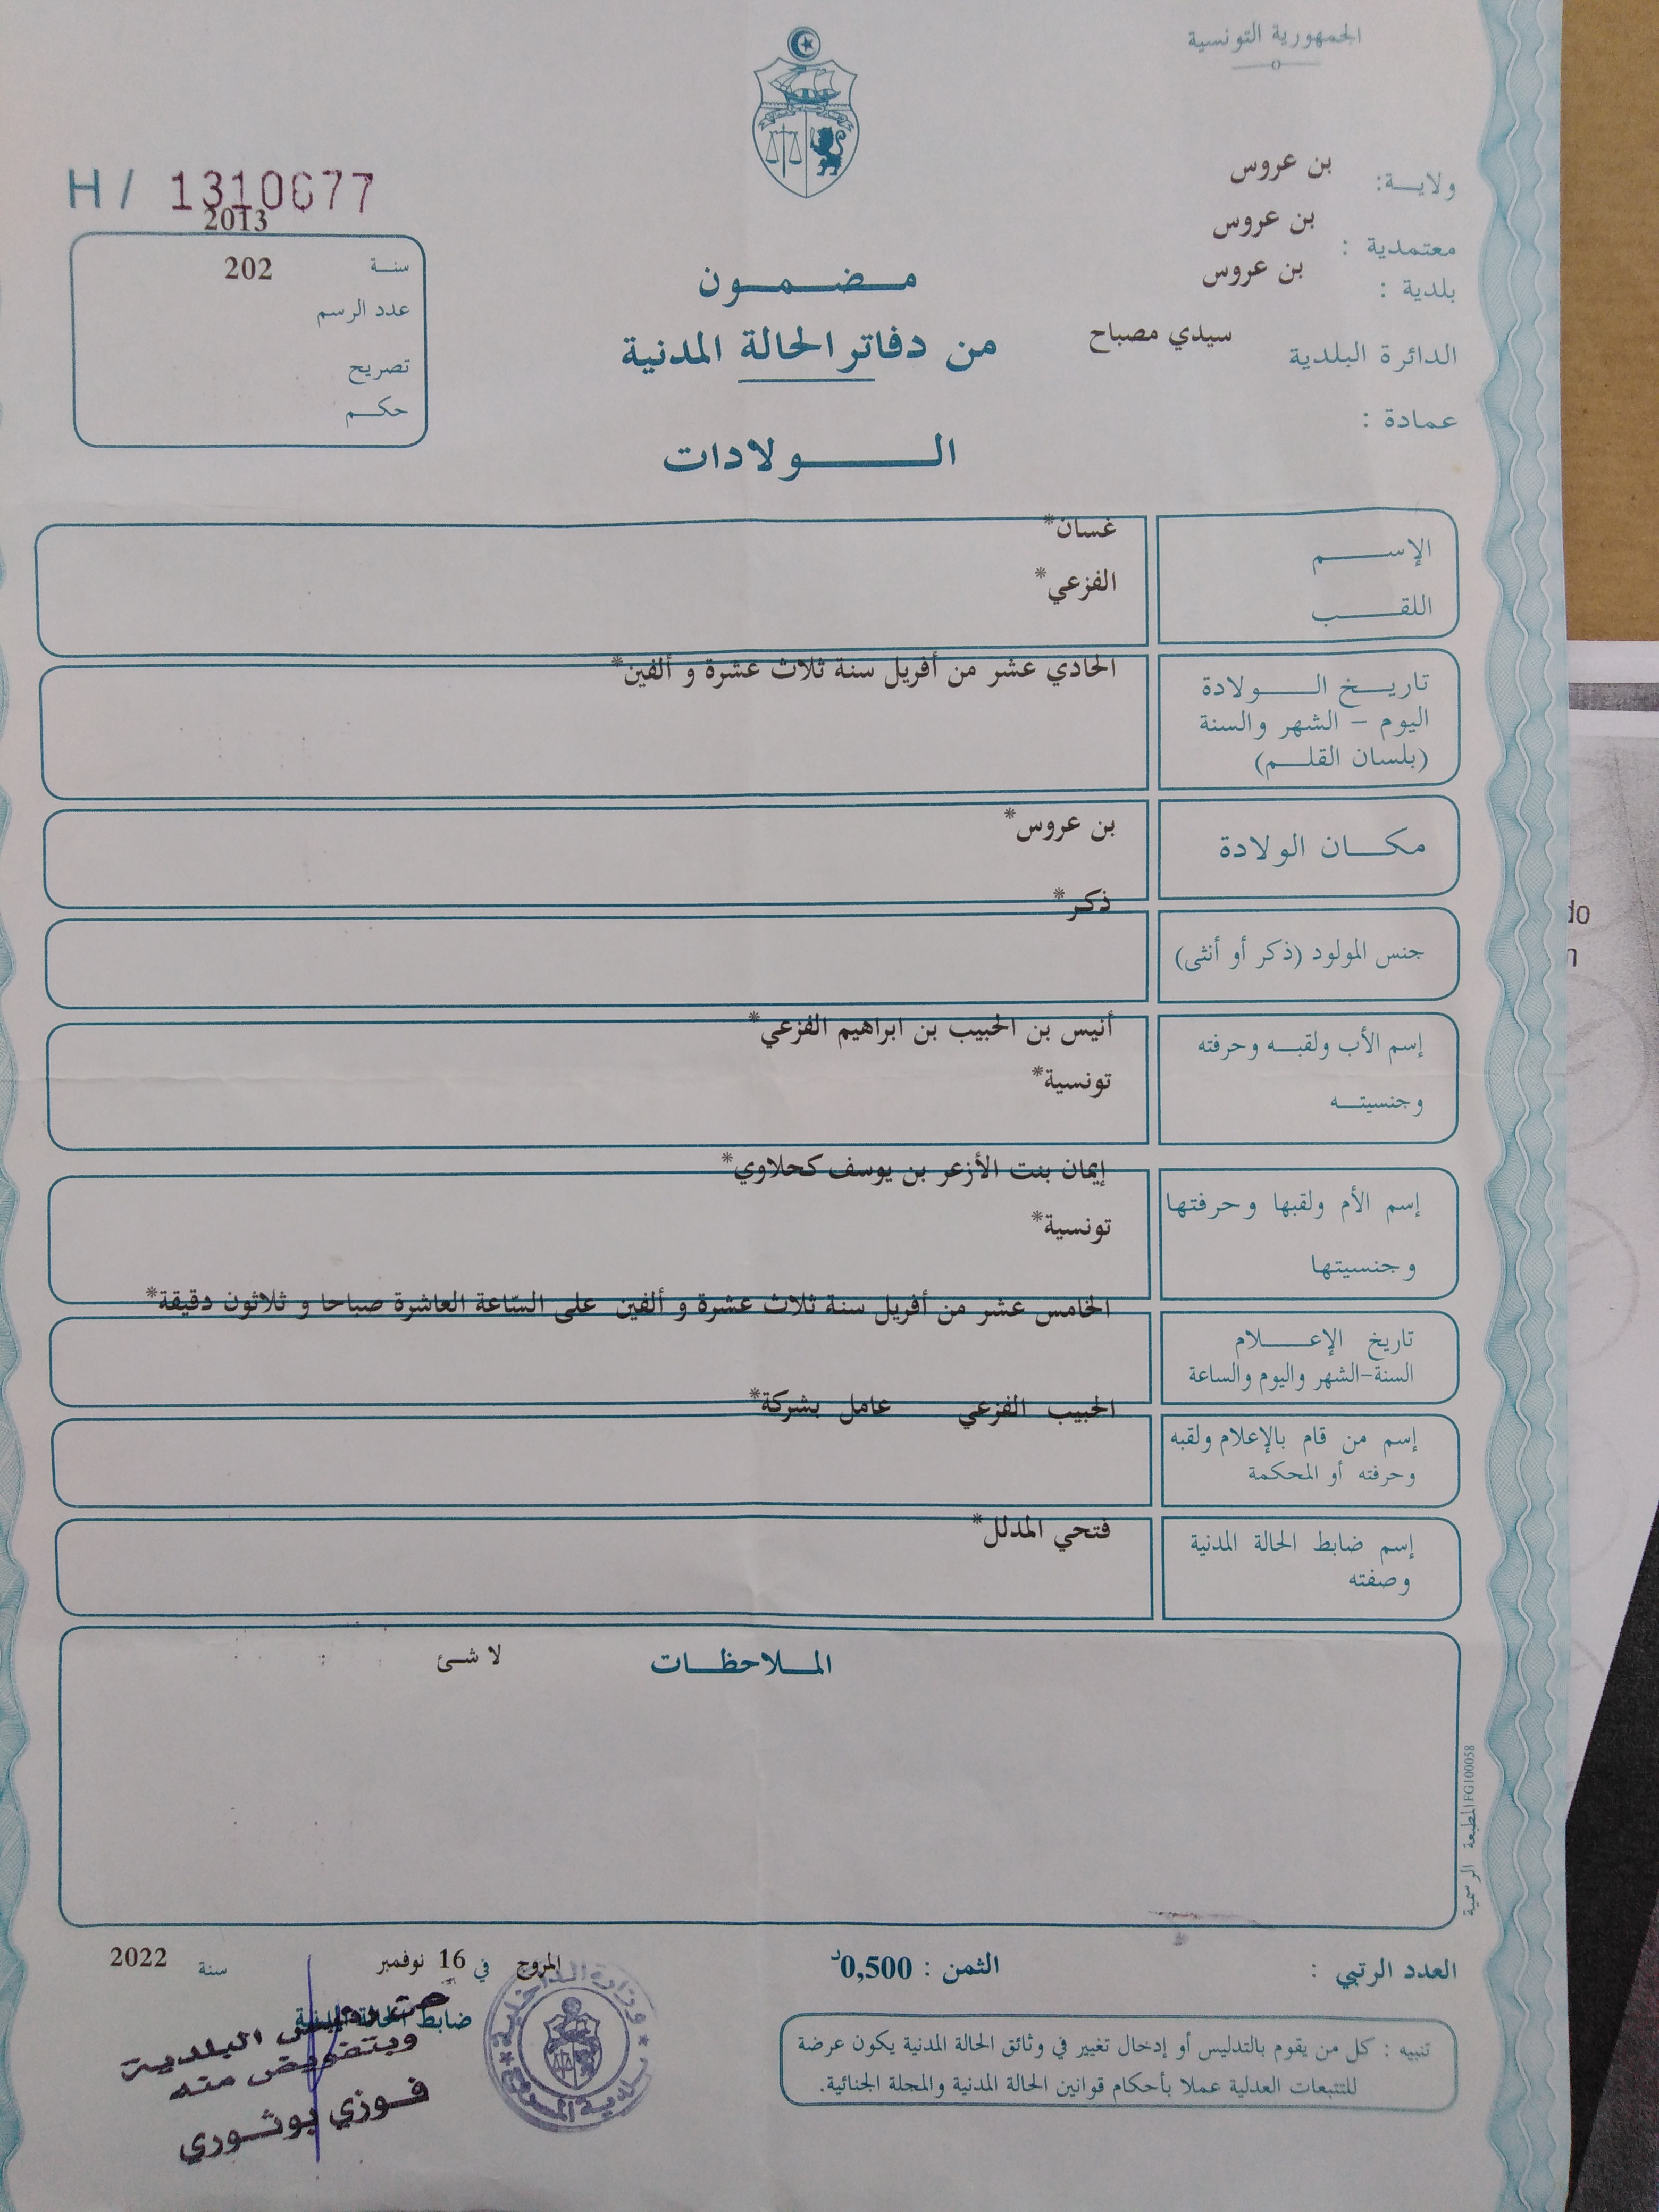 الجمهورية التونسية
ولاية: بن عروس
معتمدية : بن عروس
بلدية : بن عروس
الدائرة البلدية سيدي مصباح
عمادة :
H / 1310677
2013
سنة 202
عدد الرسم
تصريح
حكم
مضمون
من دفاتر الحالة المدنية
الولادات
الإسم غسان*
اللقب الفزعي*
تاريخ الولادة الحادي عشر من أفريل سنة ثلاث عشرة و ألفين*
اليوم - الشهر والسنة
(بلسان القلم)
مكان الولادة بن عروس*
جنس المولود (ذكر أو أنثى) ذكر*
إسم الأب ولقبه وحرفته أنيس بن الحبيب بن ابراهيم الفزعي*
وجنسيته تونسية*
إسم الأم ولقبها وحرفتها إيمان بنت الأزعر بن يوسف كحلاوي*
وجنسيتها تونسية*
تاريخ الإعلام الخامس عشر من أفريل سنة ثلاث عشرة و ألفين على السّاعة العاشرة صباحا و ثلاثون دقيقة*
السنة-الشهر واليوم والساعة
إسم من قام بالإعلام ولقبه الحبيب الفزعي عامل بشركة*
وحرفته أو المحكمة
إسم ضابط الحالة المدنية فتحي المدلل*
وصفته
الملاحظات لا شئ
المطبعة الرسمية FG100058
العدد الرتبي :
الثمن : 0,500د
المروج في 16 نوفمبر سنة 2022
ضابط الحالة المدنية
البلدية
وبتفويض منه
فوزي بوثوري
وزارة الداخلية
بلدية المروج
تنبيه : كل من يقوم بالتدليس أو إدخال تغيير في وثائق الحالة المدنية يكون عرضة
للتتبعات العدلية عملا بأحكام قوانين الحالة المدنية والمجلة الجنائية.
do